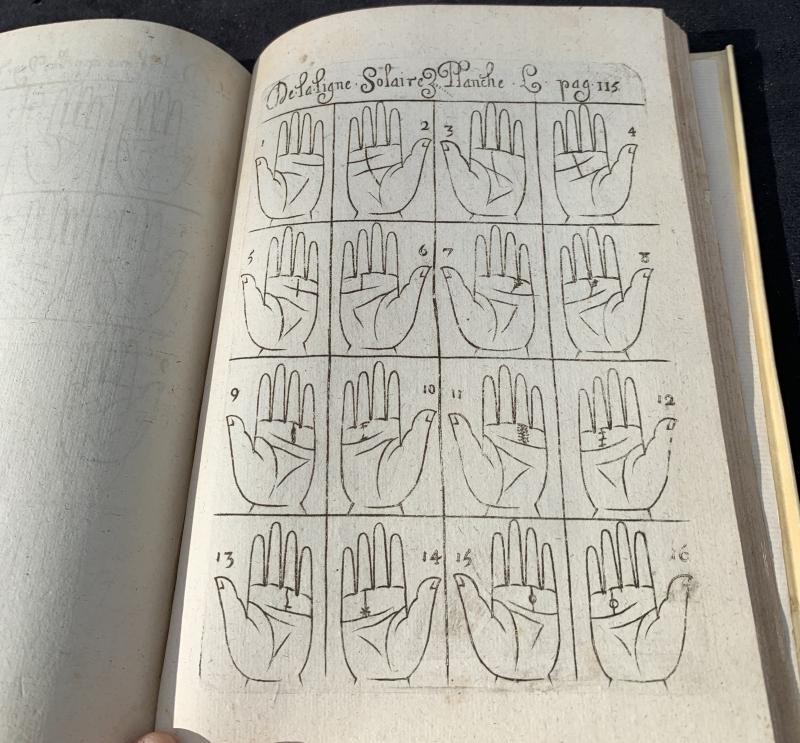 De la ligne · Solaire Planche · L · pag · 115
1 2 3 4
5 6 7 8
9 10 11 12
13 14 15 16